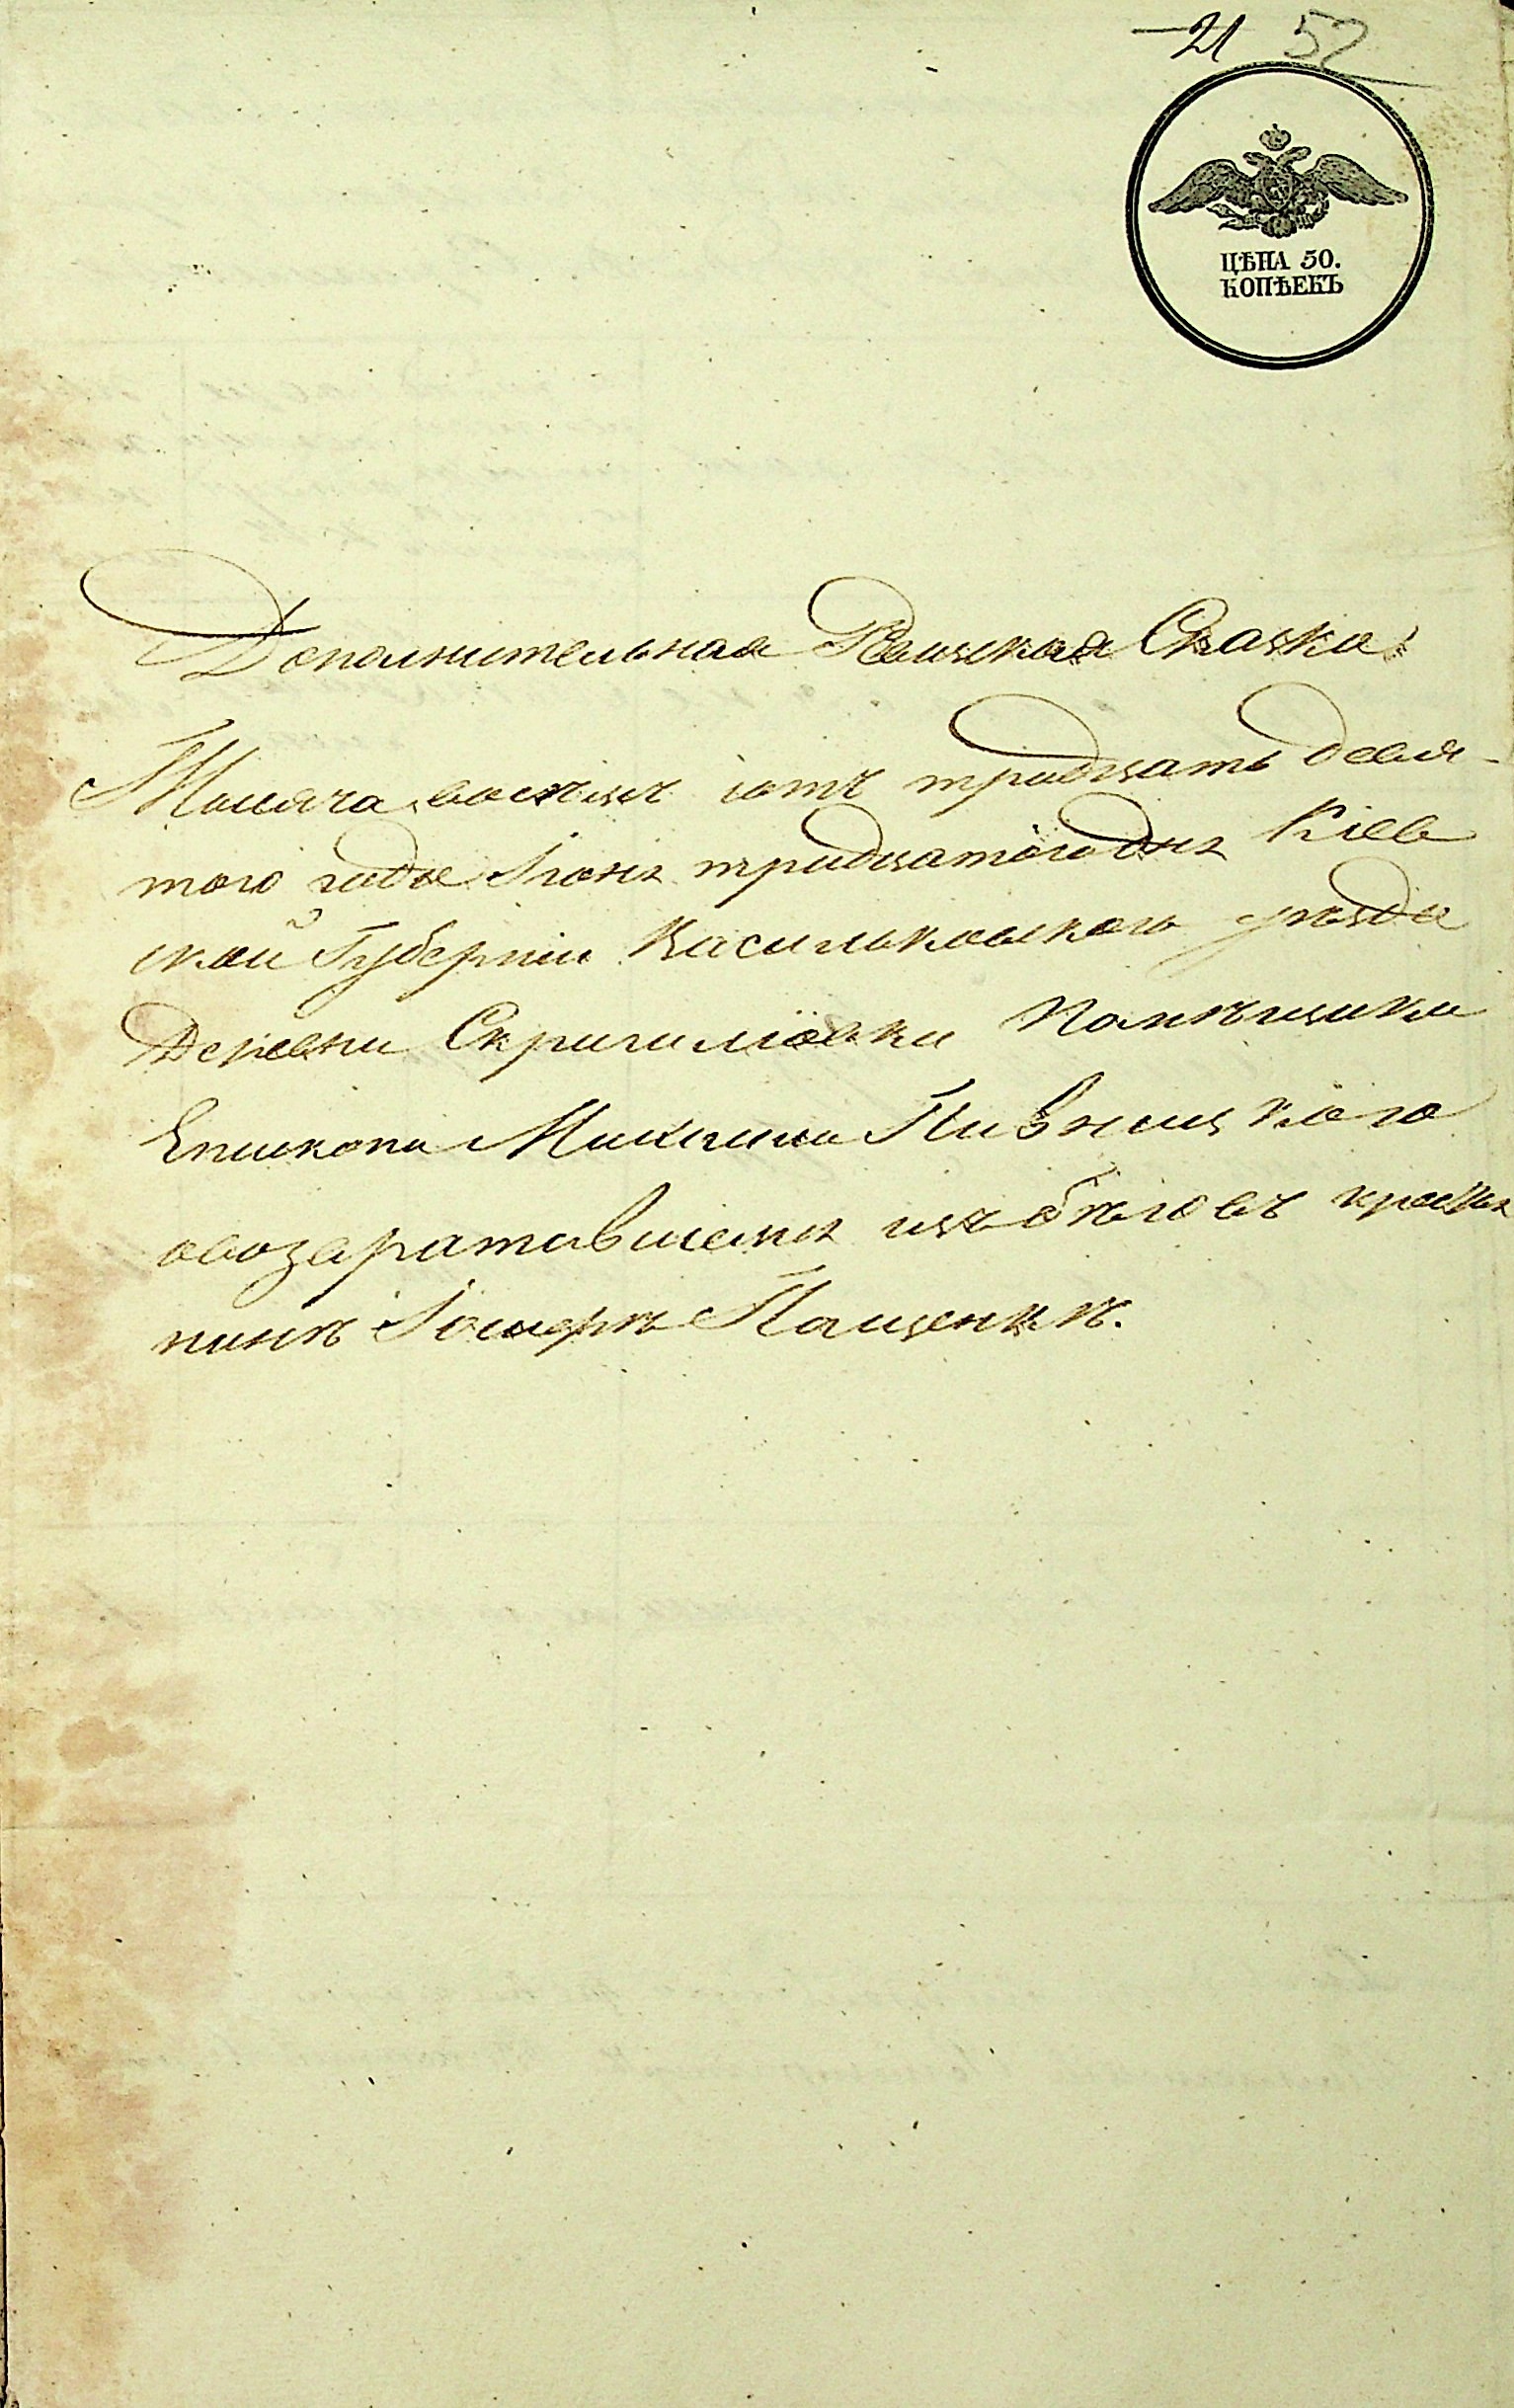 21 52
ЦѢНА 50.
КОПѢЕКЪ
Дополнительная Ревизская Сказка
Тысяча восемъ сотъ тридцать девя-
того года Іюня тридцатого дня Кіев
ской Губерніи Васильковского уѣзда
Деревни Скригилювки Помѣщика
Епископа Пивницкого
овозвратившемся изъ бѣговъ кресть
нинѣ Іосифѣ Пащенкѣ.